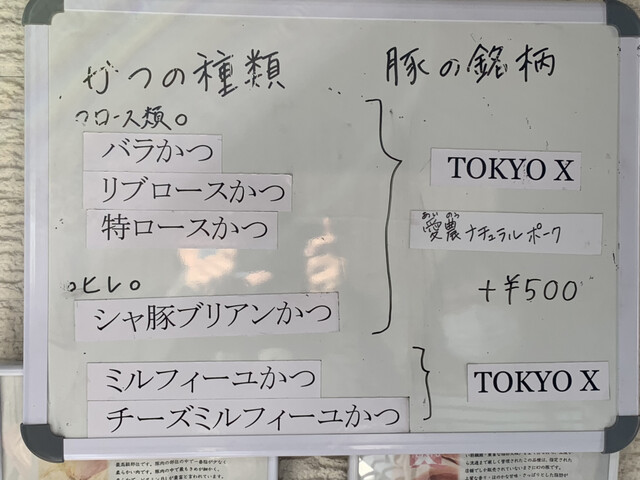 かつの種類
豚の銘柄
ロース類。
バラかつ
リブロースかつ
特ロースかつ
TOKYO X
あい のう
愛農 ナチュラルポーク
+¥500
。ヒレ。
シャ豚ブリアンかつ
ミルフィーユかつ
チーズミルフィーユかつ
TOKYO X